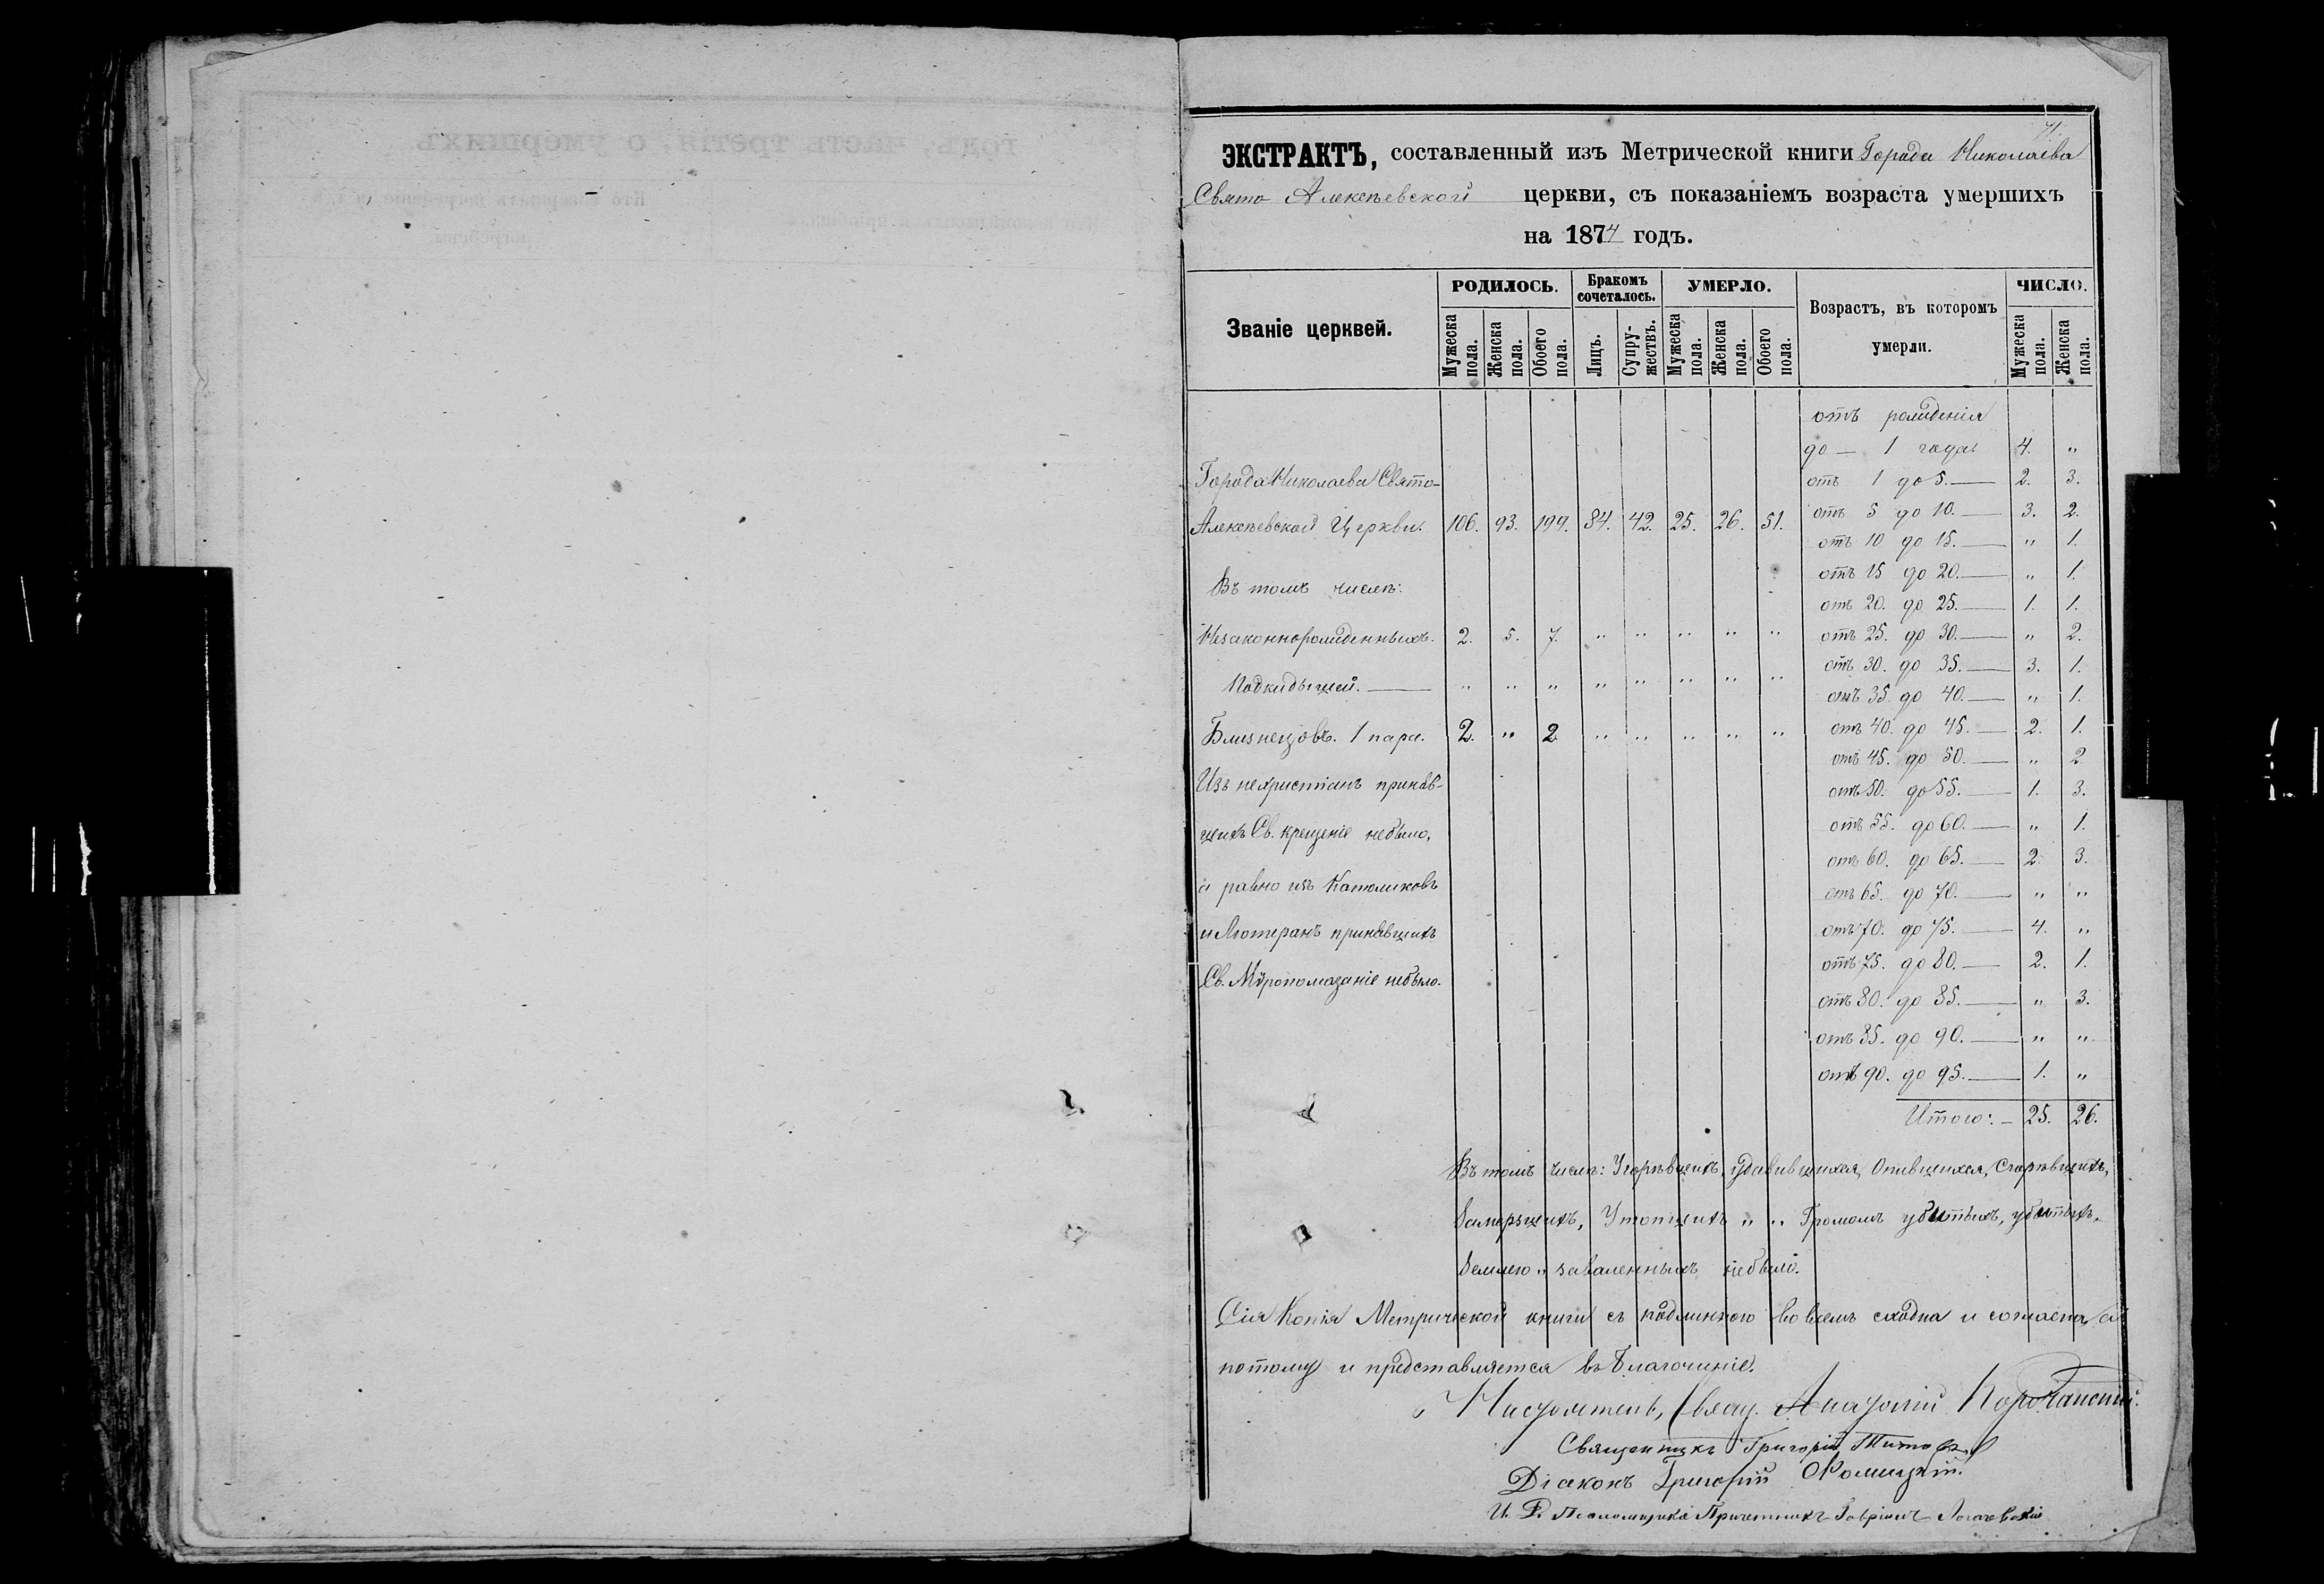 71.
ЭКСТРАКТЪ, составленный изъ Метрической книги Города Николаева
Свято Алексѣевской церкви, съ показаніемъ возраста умершихъ
на 1874 годъ.
Званіе церквей.
РОДИЛОСЬ.
Бракомъ сочеталось.
УМЕРЛО.
Возрастъ, въ которомъ умерли.
ЧИСЛО.
Мужеска пола.
Женска пола.
Обоего пола.
Лицъ.
Супружествъ.
Мужеска пола.
Женска пола.
Обоего пола.
Мужеска пола.
Женска пола.
Города Николаева Свято-
Алексѣевской Церкви. 106. 93. 199. 84. 42. 25. 26. 51.
Въ томъ числѣ:
Незаконнорожденныхъ. 2. 5. 7. " " " " "
Подкидышей. — " " " " " " " "
Близнецовъ. 1 пара. 2. " 2 " " " " "
Изъ нехристіанъ приняв-
шихъ Св. крещеніе небыло,
а равно изъ Католиковъ
и Лютеранъ принявшихъ
Св. Мѵропомазаніе небыло.
отъ рожденія
до — 1 года. 4. "
отъ 1 до 5. — 2. 3.
отъ 5 до 10. — 3. 2.
отъ 10 до 15. — " 1.
отъ 15 до 20. — " 1.
отъ 20. до 25. — 1. 1.
отъ 25. до 30. — " 2.
отъ 30. до 35. — 3. 1.
отъ 35 до 40. — " 1.
отъ 40. до 45. — 2. 1.
отъ 45. до 50. — " 2
отъ 50. до 55. — 1. 3.
отъ 55. до 60. — " 1.
отъ 60. до 65. — 2. 3.
отъ 65. до 70. — " "
отъ 70. до 75. — 4. "
отъ 75. до 80. — 2. 1.
отъ 80. до 85. — " 3.
отъ 85. до 90. — " "
отъ 90. до 95. — 1. "
Итого: — 25. 26.
Въ томъ числѣ: Угорѣвшихъ, удавившихся, Опившихся, Сгорѣвшихъ,
Замерзшихъ, Утопшихъ " " Громомъ убитыхъ, убитыхъ.
Землею " заваленныхъ небыло.
Сія Копія Метрической книги съ подлинною во всемъ сходна и согласна, а
потому и представляется въ Благочиніе.
Настоятель, Свящ. Анатолій
Священникъ Григорій Титовъ
Діаконъ Григорій
И. Д. Псаломщика Причетникъ Гавріилъ